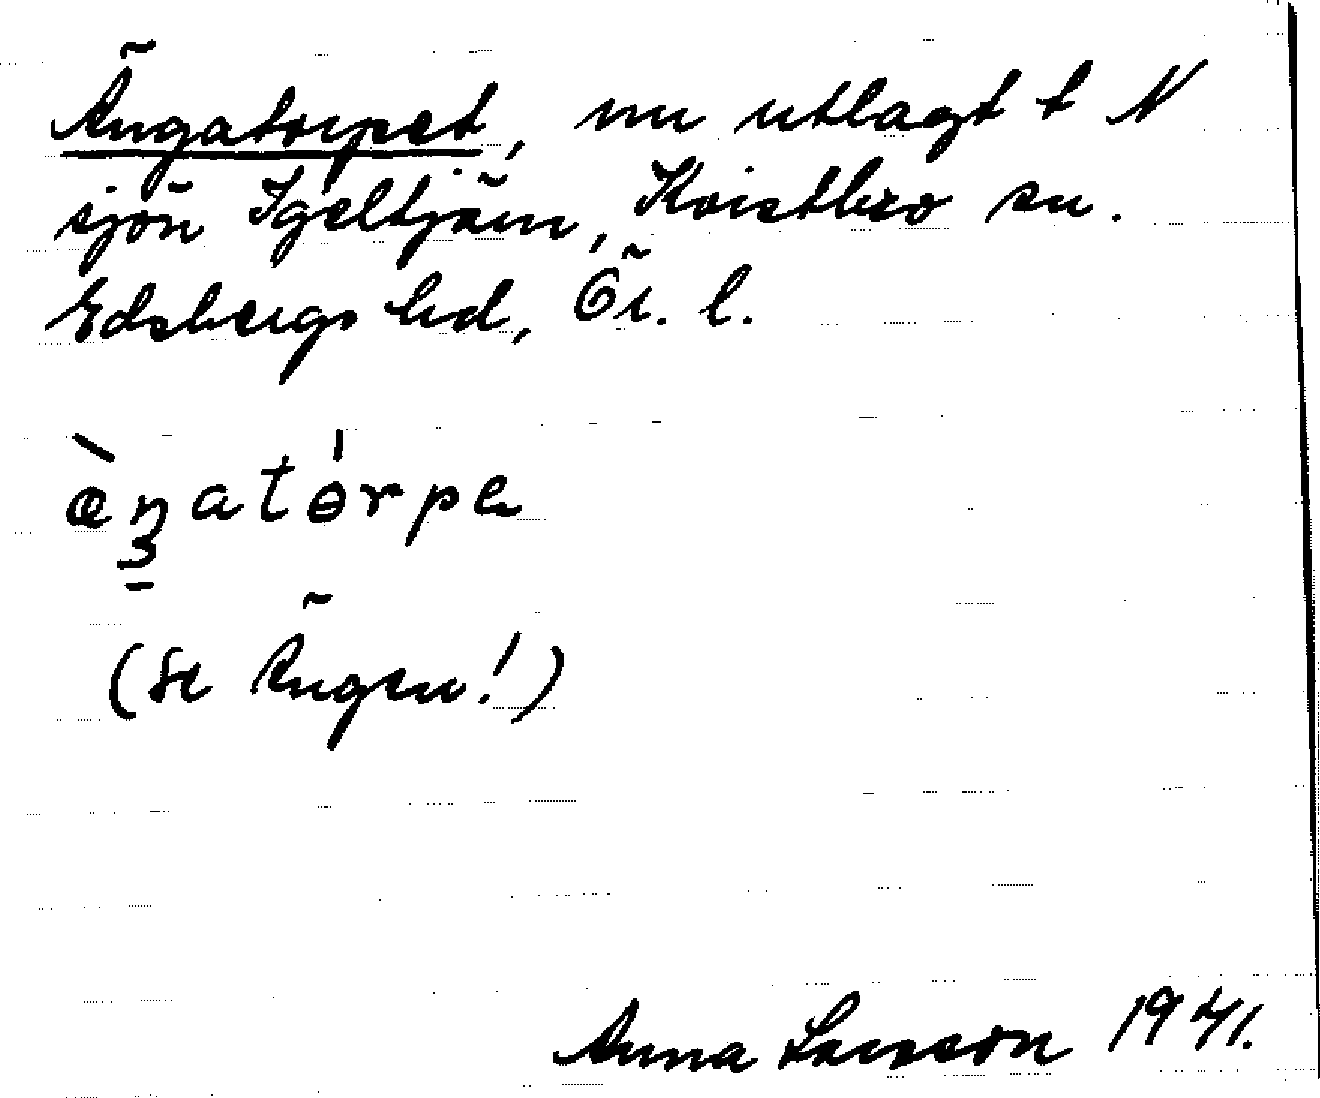 Ängatorpet, nu utlagt t N
sjön Igeltjärn, Kvistbro sn.
Edsbergs hd, Ör. l.
æ̀ŋatórpe
(Se Ängen!)
Anna Larsson 1941.